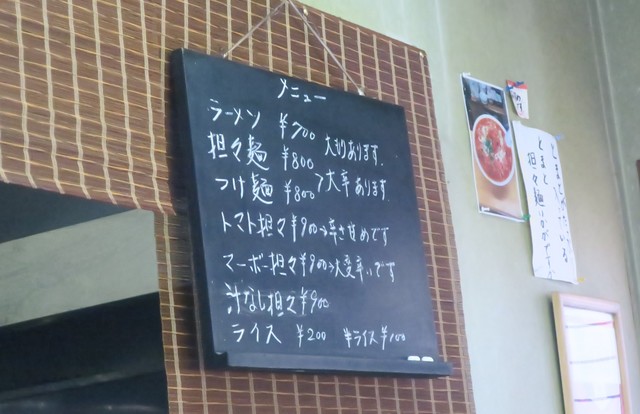 メニュー
ラーメン ¥700
担々麺 ¥800 大刈あります.
つけ麺 ¥800 大辛あります
トマト担々 ¥900→辛さ控めです
マーボ担々 ¥900→大変辛いです
汁なし担々 ¥900
ライス ¥200 半ライス ¥100
とまと
担々麺いかがですか